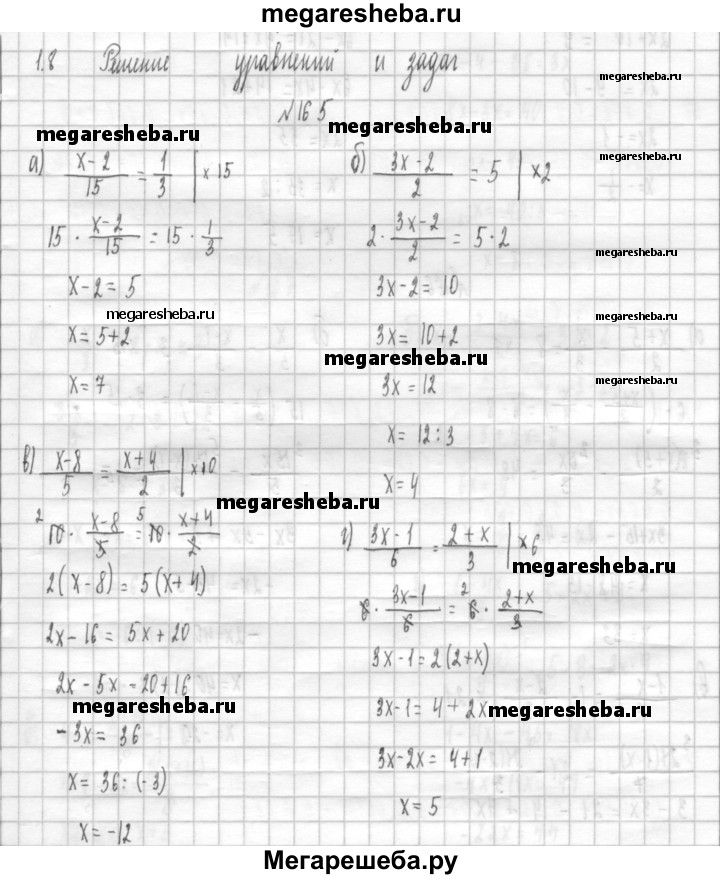 megaresheba.ru
1.8 Решение уравнений и задач
megaresheba.ru
№165
megaresheba.ru
megaresheba.ru
а) (x-2)/15 = 1/3 | ×15
15 · (x-2)/15 = 15 · 1/3
x-2 = 5
megaresheba.ru
x = 5+2
x = 7
megaresheba.ru
б) (3x-2)/2 = 5 | ×2
2 · (3x-2)/2 = 5 · 2
megaresheba.ru
3x-2 = 10
megaresheba.ru
3x = 10+2
megaresheba.ru
3x = 12
megaresheba.ru
x = 12 : 3
x = 4
в) (x-8)/5 = (x+4)/2 | ×10
megaresheba.ru
2 10 · (x-8)/5 = 5 10 · (x+4)/2
2(x-8) = 5(x+4)
2x-16 = 5x+20
2x-5x = 20+16
megaresheba.ru
-3x = 36
x = 36 : (-3)
x = -12
г) (3x-1)/6 = (2+x)/3 | ×6
megaresheba.ru
6 · (3x-1)/6 = 2 6 · (2+x)/3
3x-1 = 2(2+x)
3x-1 = 4+2x
megaresheba.ru
3x-2x = 4+1
x = 5
Мегарешеба.ру